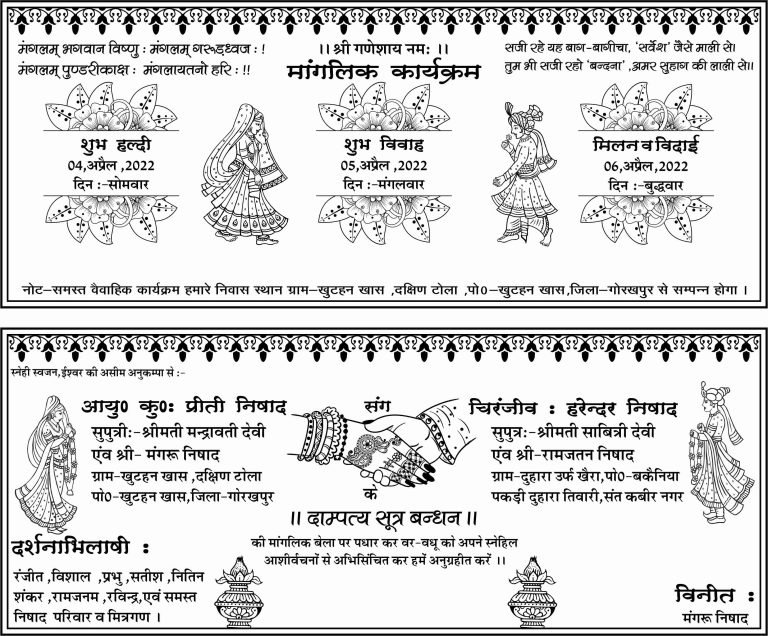 मंगलम् भगवान विष्णु : मंगलम् गरूड़ध्वज : !
मंगलम् पुण्डरीकाक्ष : मंगलायतनो हरि : !!
।। श्री गणेशाय नम: ।।
मांगलिक कार्यक्रम
सजी रहे यह बाग-बागीचा, 'सर्वेश' जैसे माली से।
तुम भी सजी रहो 'बन्दना' ,अमर सुहाग की लाली से।।
शुभ हल्दी
04,अप्रैल ,2022
दिन :-सोमवार
शुभ विवाह
05,अप्रैल ,2022
दिन :-मंगलवार
मिलन व विदाई
06,अप्रैल ,2022
दिन :-बुद्धवार
नोट–समस्त वैवाहिक कार्यक्रम हमारे निवास स्थान ग्राम–खुटहन खास ,दक्षिण टोला ,पो0–खुटहन खास,जिला–गोरखपुर से सम्पन्न होगा ।
स्नेही स्वजन,ईश्वर की असीम अनुकम्पा से :-
आयु0 कु0: प्रीती निषाद
सुपुत्री:-श्रीमती मन्द्रावती देवी
एंव श्री- मंगरू निषाद
ग्राम-खुटहन खास ,दक्षिण टोला
पो0-खुटहन खास,जिला-गोरखपुर
संग
चिरंजीव : हरेन्दर निषाद
सुपुत्र:-श्रीमती साबित्री देवी
एंव श्री-रामजतन निषाद
ग्राम-दुहारा उर्फ खैरा,पो0-बकैनिया
पकड़ी दुहारा तिवारी,संत कबीर नगर
के
।। दाम्पत्य सूत्र बन्धन ।।
की मांगलिक बेला पर पधार कर वर-वधू को अपने स्नेहिल
आशीर्वचनों से अभिसिंचित कर हमें अनुग्रहीत करें ।।
दर्शनाभिलाषी :
रंजीत ,विशाल ,प्रभु ,सतीश ,नितिन
शंकर ,रामजनम ,रविन्द्र,एवं समस्त
निषाद परिवार व मित्रगण ।
विनीत :
मंगरू निषाद